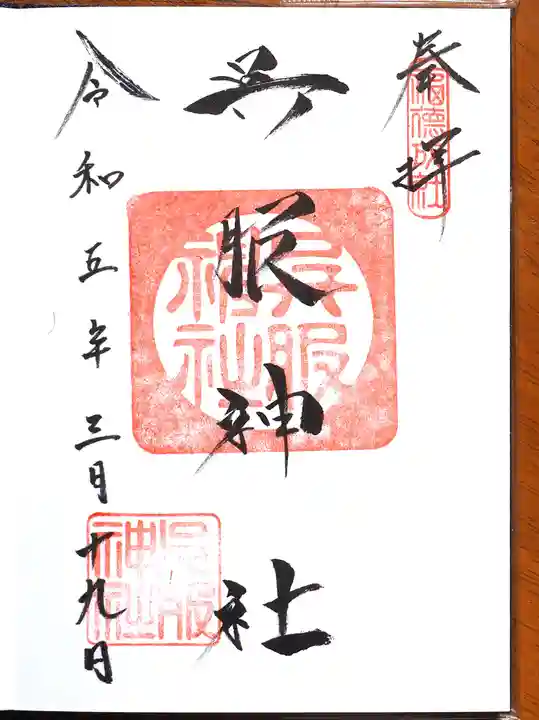 奉拝
呉服神社
呉服神社
令和五年三月十九日
呉服神社